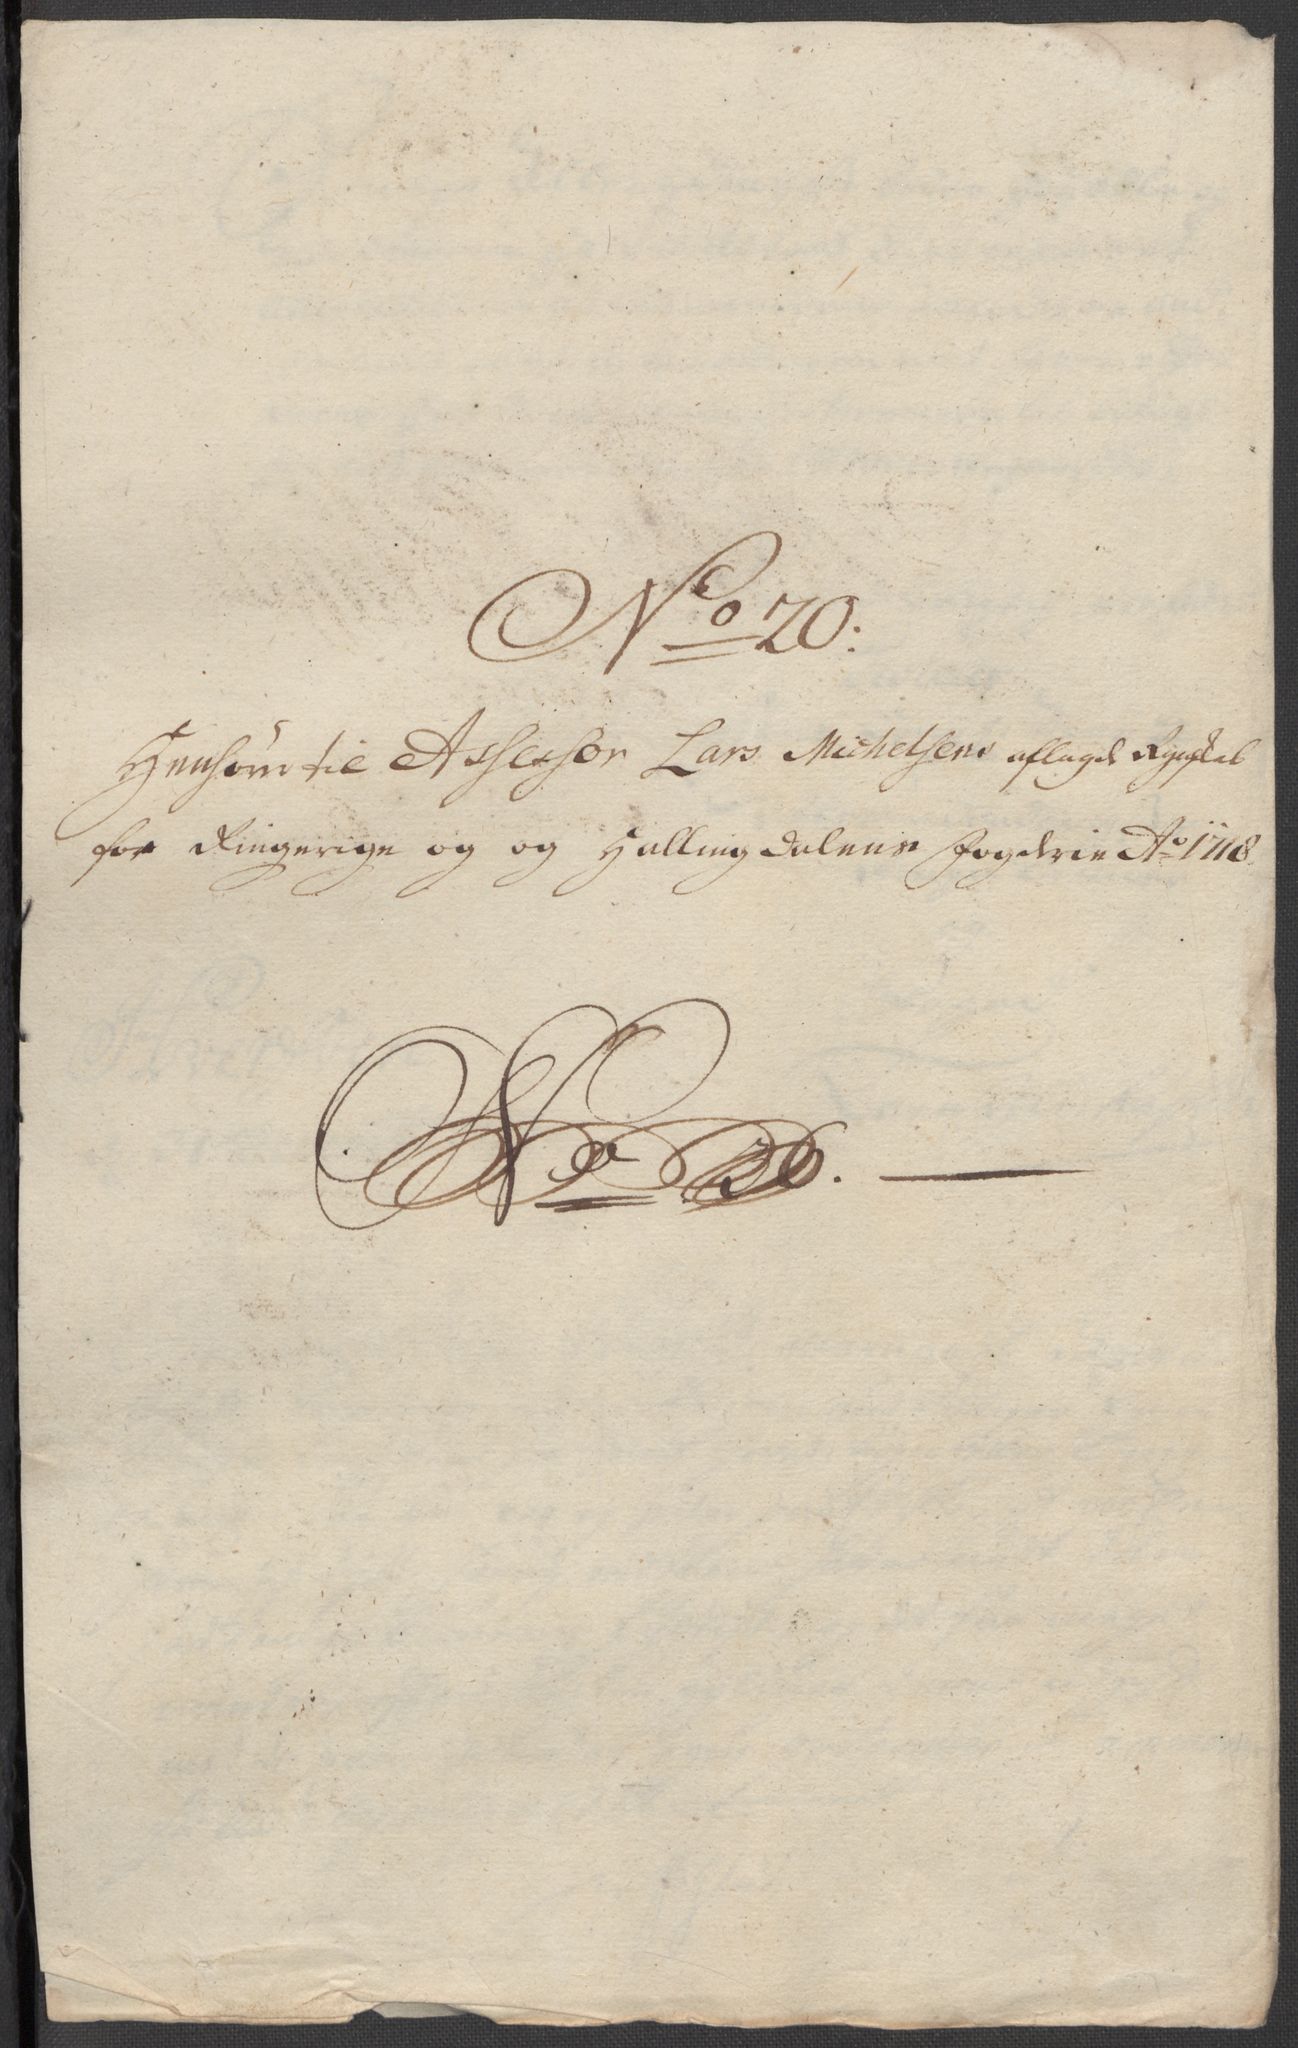 No 20:
Henhører til Assessor Lars Michelsens aflagde Regnskab
for Ringerige og og Hallingdalens Fogderie Ao 1718
No 36.